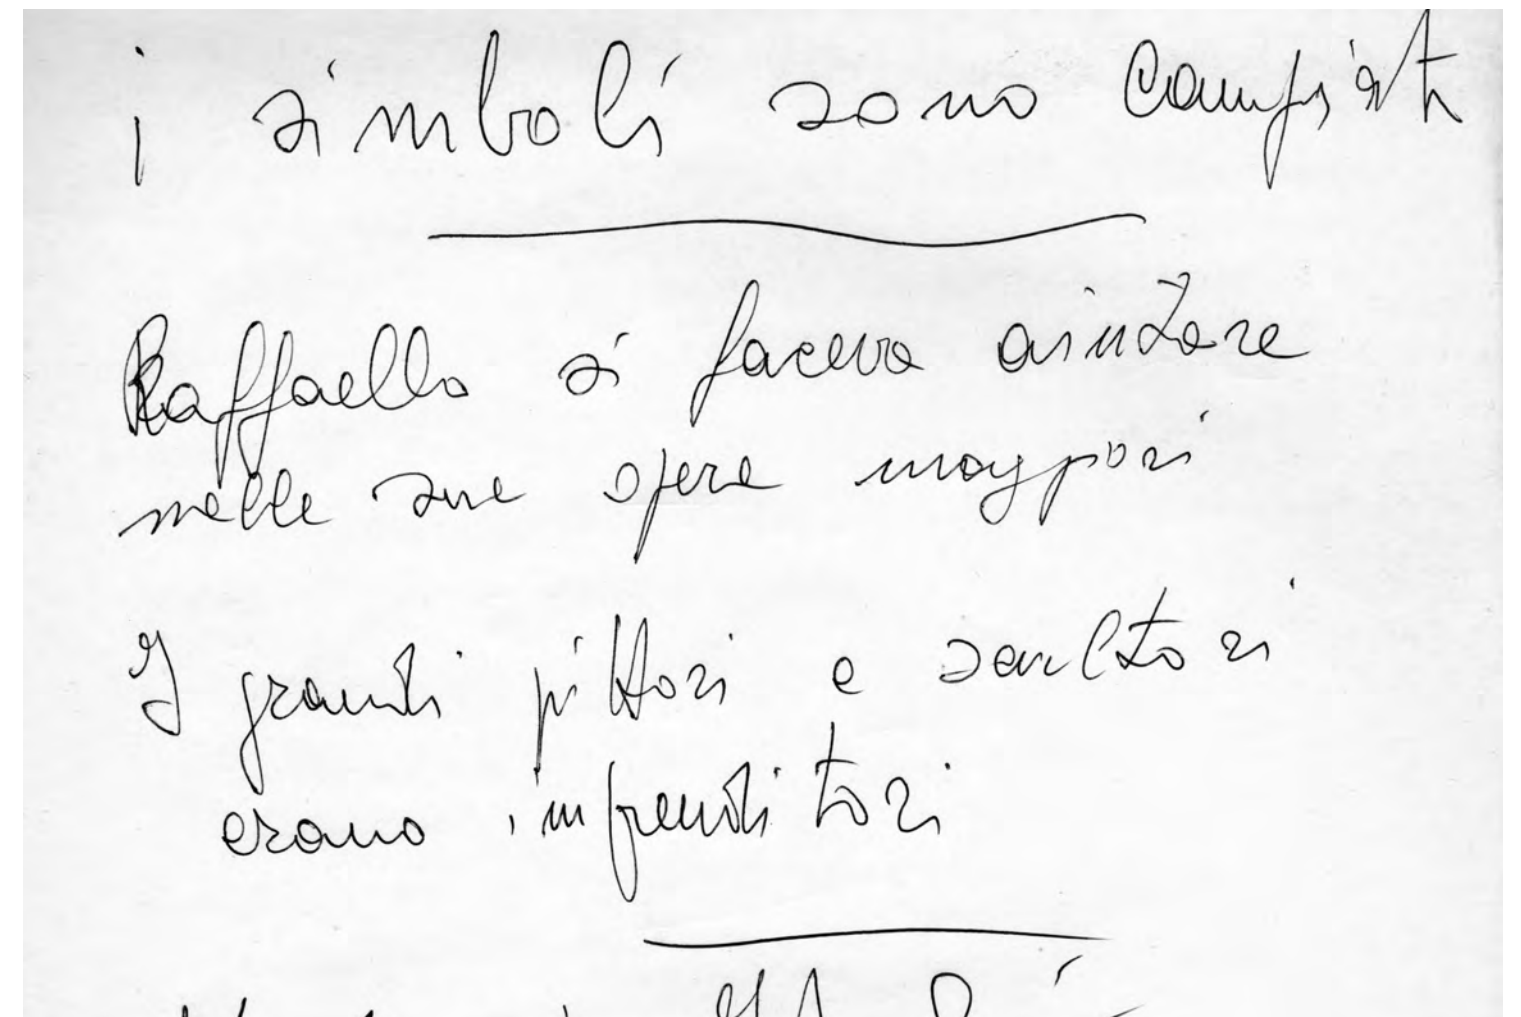 i simboli sono
Raffaello si faceva aiutare
nelle sue opere maggiori
I grandi pittori e scultori
erano imprenditori